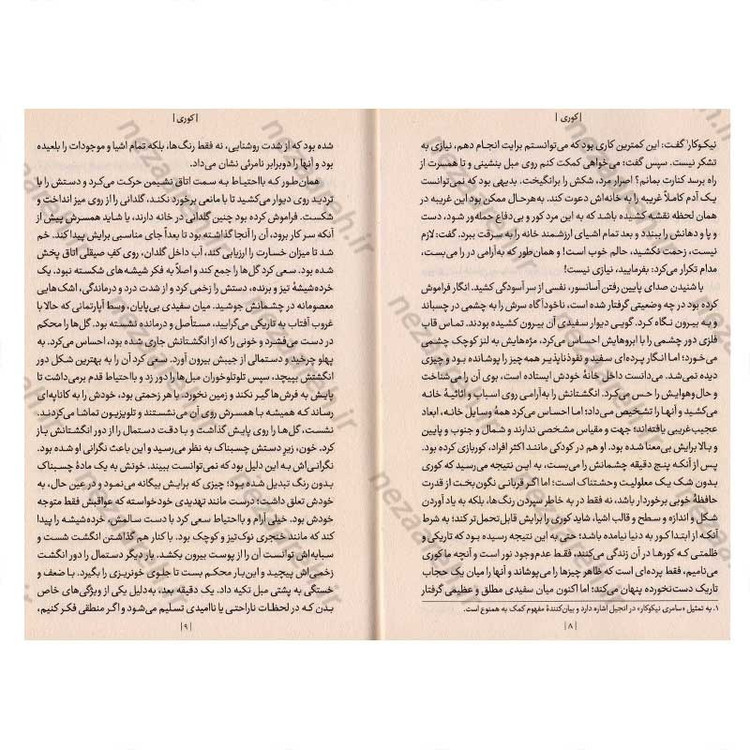 | کوری |
نیکوکار۱ گفت: این کمترین کاری بود که می‌توانستم برایت انجام دهم، نیازی به
تشکر نیست. سپس گفت: می‌خواهی کمکت کنم روی مبل بنشینی و تا همسرت از
راه برسد کنارت بمانم؟ اصرار مرد، شکش را برانگیخت. بدیهی بود که نمی‌توانست
یک آدم کاملاً غریبه را به خانه‌اش دعوت کند. به‌هرحال ممکن بود این غریبه در
همان لحظه نقشه کشیده باشد که به این مرد کور و بی‌دفاع حمله‌ور شود، دست
و پا و دهانش را ببندد و بعد تمام اشیای ارزشمند خانه را به سرقت ببرد. گفت: لازم
نیست، زحمت نکشید، حالم خوب است! و همان‌طور که به‌آرامی در را می‌بست،
مدام تکرار می‌کرد: بفرمایید، نیازی نیست!
با شنیدن صدای پایین رفتن آسانسور، نفسی از سر آسودگی کشید. انگار فراموش
کرده بود در چه وضعیتی گرفتار شده است، ناخودآگاه سرش را به چشمی در چسباند
و به بیرون نگاه کرد. گویی دیوار سفیدی آن بیرون کشیده بودند. تماس قاب
فلزی دور چشمی را با ابروهایش احساس می‌کرد، مژه‌هایش به لنز کوچک چشمی
می‌خورد؛ اما انگار پرده‌ای سفید و نفوذناپذیر همه چیز را پوشانده بود و چیزی
دیده نمی‌شد. می‌دانست داخل خانهٔ خودش ایستاده است، بوی آن را می‌شناخت
و حال‌وهوایش را حس می‌کرد. انگشتانش را به‌آرامی روی اسباب و اثاثیهٔ خانه
می‌کشید و آنها را تشخیص می‌داد؛ اما احساس می‌کرد همهٔ وسایل خانه، ابعاد
عجیب‌غریبی یافته‌اند؛ جهت و مقیاس مشخصی ندارند و شمال و جنوب و پایین
و بالا برایش بی‌معنا شده بود. او هم در کودکی مانند اکثر افراد، کوربازی کرده بود.
پس از آنکه پنج دقیقه چشمانش را می‌بست، به این نتیجه می‌رسید که کوری
بدون شک یک معلولیت وحشتناک است؛ اما اگر قربانی نگون‌بخت از قدرت
حافظهٔ خوبی برخوردار باشد، نه فقط در به خاطر سپردن رنگ‌ها، بلکه به یاد آوردن
شکل و اندازه و سطح و قالب اشیا، شاید کوری را برایش قابل‌تحمل‌تر کند؛ به شرط
آنکه از ابتدا کور به دنیا نیامده باشد؛ حتی به این نتیجه رسیده بود که تاریکی و
ظلمتی که کورها در آن زندگی می‌کنند، فقط عدم‌وجود نور است و آنچه ما کوری
می‌نامیم، فقط پرده‌ای است که ظاهر چیزها را می‌پوشاند و آنها را میان یک حجاب
تاریک دست‌نخورده پنهان می‌کند؛ اما اکنون میان سفیدی مطلق و عظیمی گرفتار
۱. به تمثیل «سامری نیکوکار» در انجیل اشاره دارد و بیان‌کنندهٔ مفهوم کمک به همنوع است.
| ۸ |
| کوری |
شده بود که از شدت روشنایی، نه فقط رنگ‌ها، بلکه تمام اشیا و موجودات را بلعیده
بود و آنها را دوبرابر نامرئی نشان می‌داد.
همان‌طور که بااحتیاط به سمت اتاق نشیمن حرکت می‌کرد و دستش را با
تردید روی دیوار می‌کشید تا با مانعی برخورد نکند، گلدانی را از روی میز انداخت و
شکست. فراموش کرده بود چنین گلدانی در خانه دارند، یا شاید همسرش پیش از
آنکه سر کار برود، آن را آنجا گذاشته بود تا بعداً جای مناسبی برایش پیدا کند. خم
شد تا میزان خسارت را ارزیابی کند، آب داخل گلدان، روی کف صیقلی اتاق پخش
شده بود. سعی کرد گل‌ها را جمع کند و اصلاً به فکر شیشه‌های شکسته نبود. یک
خرده‌شیشهٔ تیز و برنده، دستش را زخمی کرد و از شدت درد و درماندگی، اشک‌هایی
معصومانه در چشمانش جوشید. میان سفیدی بی‌پایان، وسط آپارتمانی که حالا با
غروب آفتاب به تاریکی می‌گرایید، مستأصل و درمانده نشسته بود. گل‌ها را محکم
در دست می‌فشرد و خونی را که از انگشتانش جاری شده بود، احساس می‌کرد. به
پهلو چرخید و دستمالی از جیبش بیرون آورد. سعی کرد آن را به بهترین شکل دور
انگشتش بپیچد، سپس تلوتلوخوران مبل‌ها را دور زد و بااحتیاط قدم برمی‌داشت تا
پایش به فرش‌ها گیر نکند و زمین نخورد. با هر زحمتی بود، خودش را به کاناپه‌ای
رساند که همیشه با همسرش روی آن می‌نشستند و تلویزیون تماشا می‌کردند.
نشست، گل‌ها را روی پایش گذاشت و با دقت دستمال را از دور انگشتش باز
کرد. خون، زیر دستش چسبناک به نظر می‌رسید و این باعث نگرانی او شده بود.
نگرانی‌اش به این دلیل بود که نمی‌توانست ببیند. خونش به یک مادهٔ چسبناک
بدون رنگ تبدیل شده بود؛ چیزی که برایش بیگانه می‌نمود و در عین حال، به
خودش تعلق داشت؛ درست مانند تهدیدی خودخواسته که عواقبش فقط متوجه
خودش بود. خیلی آرام و بااحتیاط سعی کرد با دست سالمش خرده‌شیشه را پیدا
کند که مانند خنجری نوک‌تیز و کوچک بود. با کنار هم گذاشتن انگشت شست و
سبابه‌اش توانست آن را از پوست بیرون بکشد. بار دیگر دستمال را دور انگشت
زخمی‌اش پیچید و این‌بار محکم بست تا جلوی خونریزی را بگیرد. با ضعف و
خستگی به پشتی مبل تکیه داد. یک دقیقه بعد، به‌دلیل یکی از ویژگی‌های خاص
بدن که در لحظات ناراحتی یا ناامیدی تسلیم می‌شود و اگر منطقی فکر کنیم،
| ۹ |
nezaareh.ir